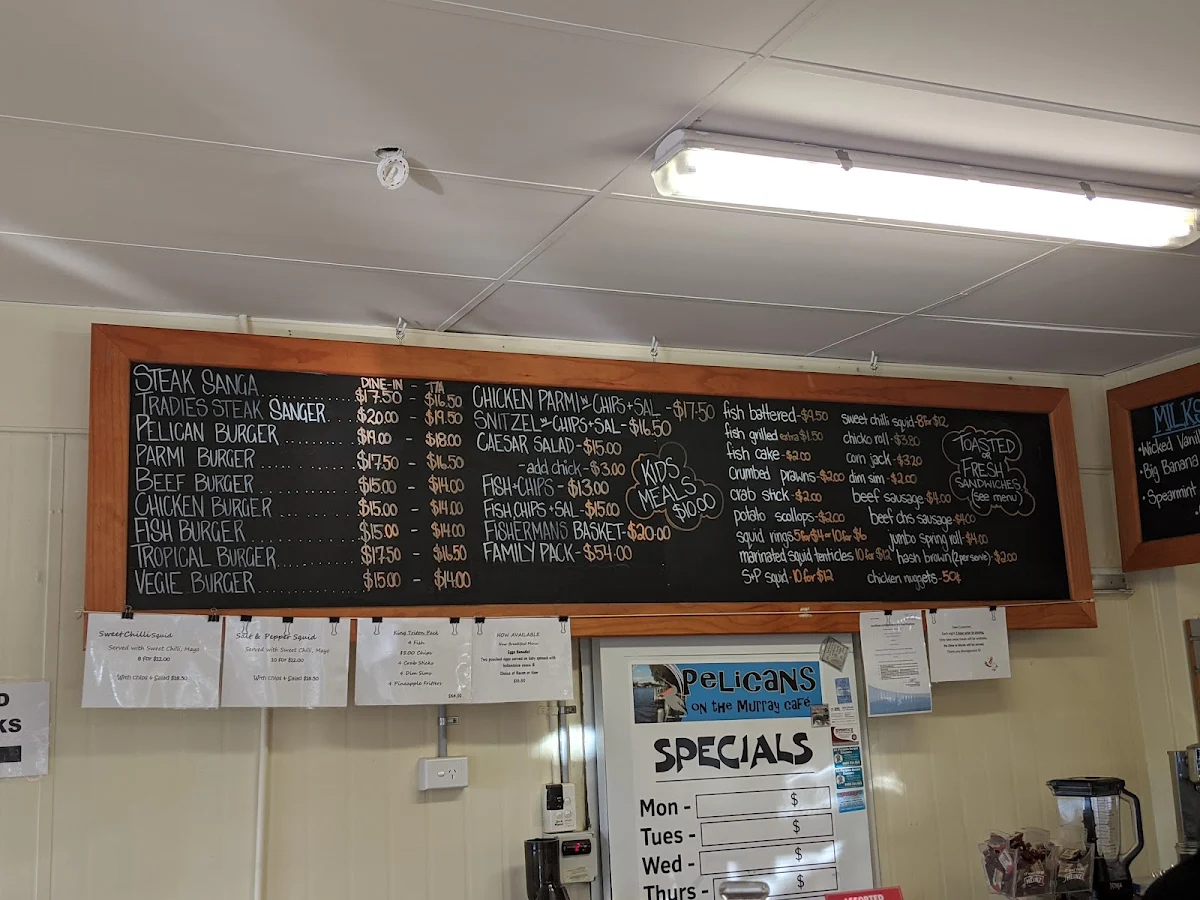 DINE-IN - T/A
STEAK SANGA.......... $17.50 - $16.50
TRADIES STEAK SANGER $20.00 - $19.50
PELICAN BURGER.......... $19.00 - $18.00
PARMI BURGER.......... $17.50 - $16.50
BEEF BURGER.......... $15.00 - $14.00
CHICKEN BURGER.......... $15.00 - $14.00
FISH BURGER.......... $15.00 - $14.00
TROPICAL BURGER.......... $17.50 - $16.50
VEGIE BURGER.......... $15.00 - $14.00
CHICKEN PARMI W CHIPS+SAL - $17.50
SNITZEL W CHIPS+SAL - $16.50
CAESAR SALAD - $15.00
-add chick - $3.00
FISH+CHIPS - $13.00
FISH, CHIPS+SAL - $15.00
FISHERMANS BASKET - $20.00
FAMILY PACK - $54.00
KIDS
MEALS
$10.00
fish battered - $4.50
fish grilled extra $1.50
fish cake - $2.00
crumbed prawns - $2.00
crab stick - $2.00
potato scallops - $2.00
squid rings 5 for $4 or 10 for $6
marinated squid tenticles 10 for $12
S+P squid - 10 for $12
sweet chilli squid - 8 for $12
chicko roll - $3.80
corn jack - $3.20
dim sim - $2.00
beef sausage - $4.00
beef chs sausage - $4.00
jumbo spring roll - $4.00
hash brown (2 per serve) - $2.00
chicken nuggets - 50¢
TOASTED
or
FRESH
SANDWICHES
(see menu)
MILKS
•Wicked Vanil
•Big Banana
•Spearmint
Sweet Chilli Squid
Served with Sweet Chilli, Mayo
8 FOR $12.00
With Chips & Salad $18.50
Salt & Pepper Squid
Served with Sweet Chilli, Mayo
10 FOR $12.00
With Chips & Salad $18.50
King Triton Pack
4 Fish
$5.00 Chips
4 Crab Sticks
4 Dim Sims
4 Pineapple Fritters
$54.00
NOW AVAILABLE
New Breakfast Menu
Eggs Benedict
Two poached eggs served on
Hollandaise sauce &
Choice of Bacon or Ham
PELICANS
ON THE MURRAY CAFE
SPECIALS
Mon - $
Tues - $
Wed - $
Thurs - $
ASSORTED
KS
HEINZ
HEINZ
NINJA